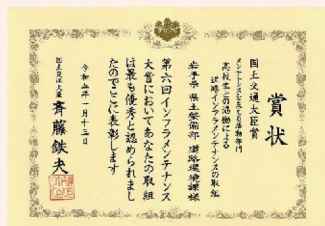 賞状
国土交通大臣賞
メンテナンスを支える活動部門
高校生との協働による
橋梁インフラメンテナンスの取組
岩手県 県土整備部 道路環境課様
第六回インフラメンテナンス
大賞においてあなたの取組
は最も優秀と認められまし
たのでここに表彰します
令和五年一月十三日
国土交通大臣
斉藤鉄夫